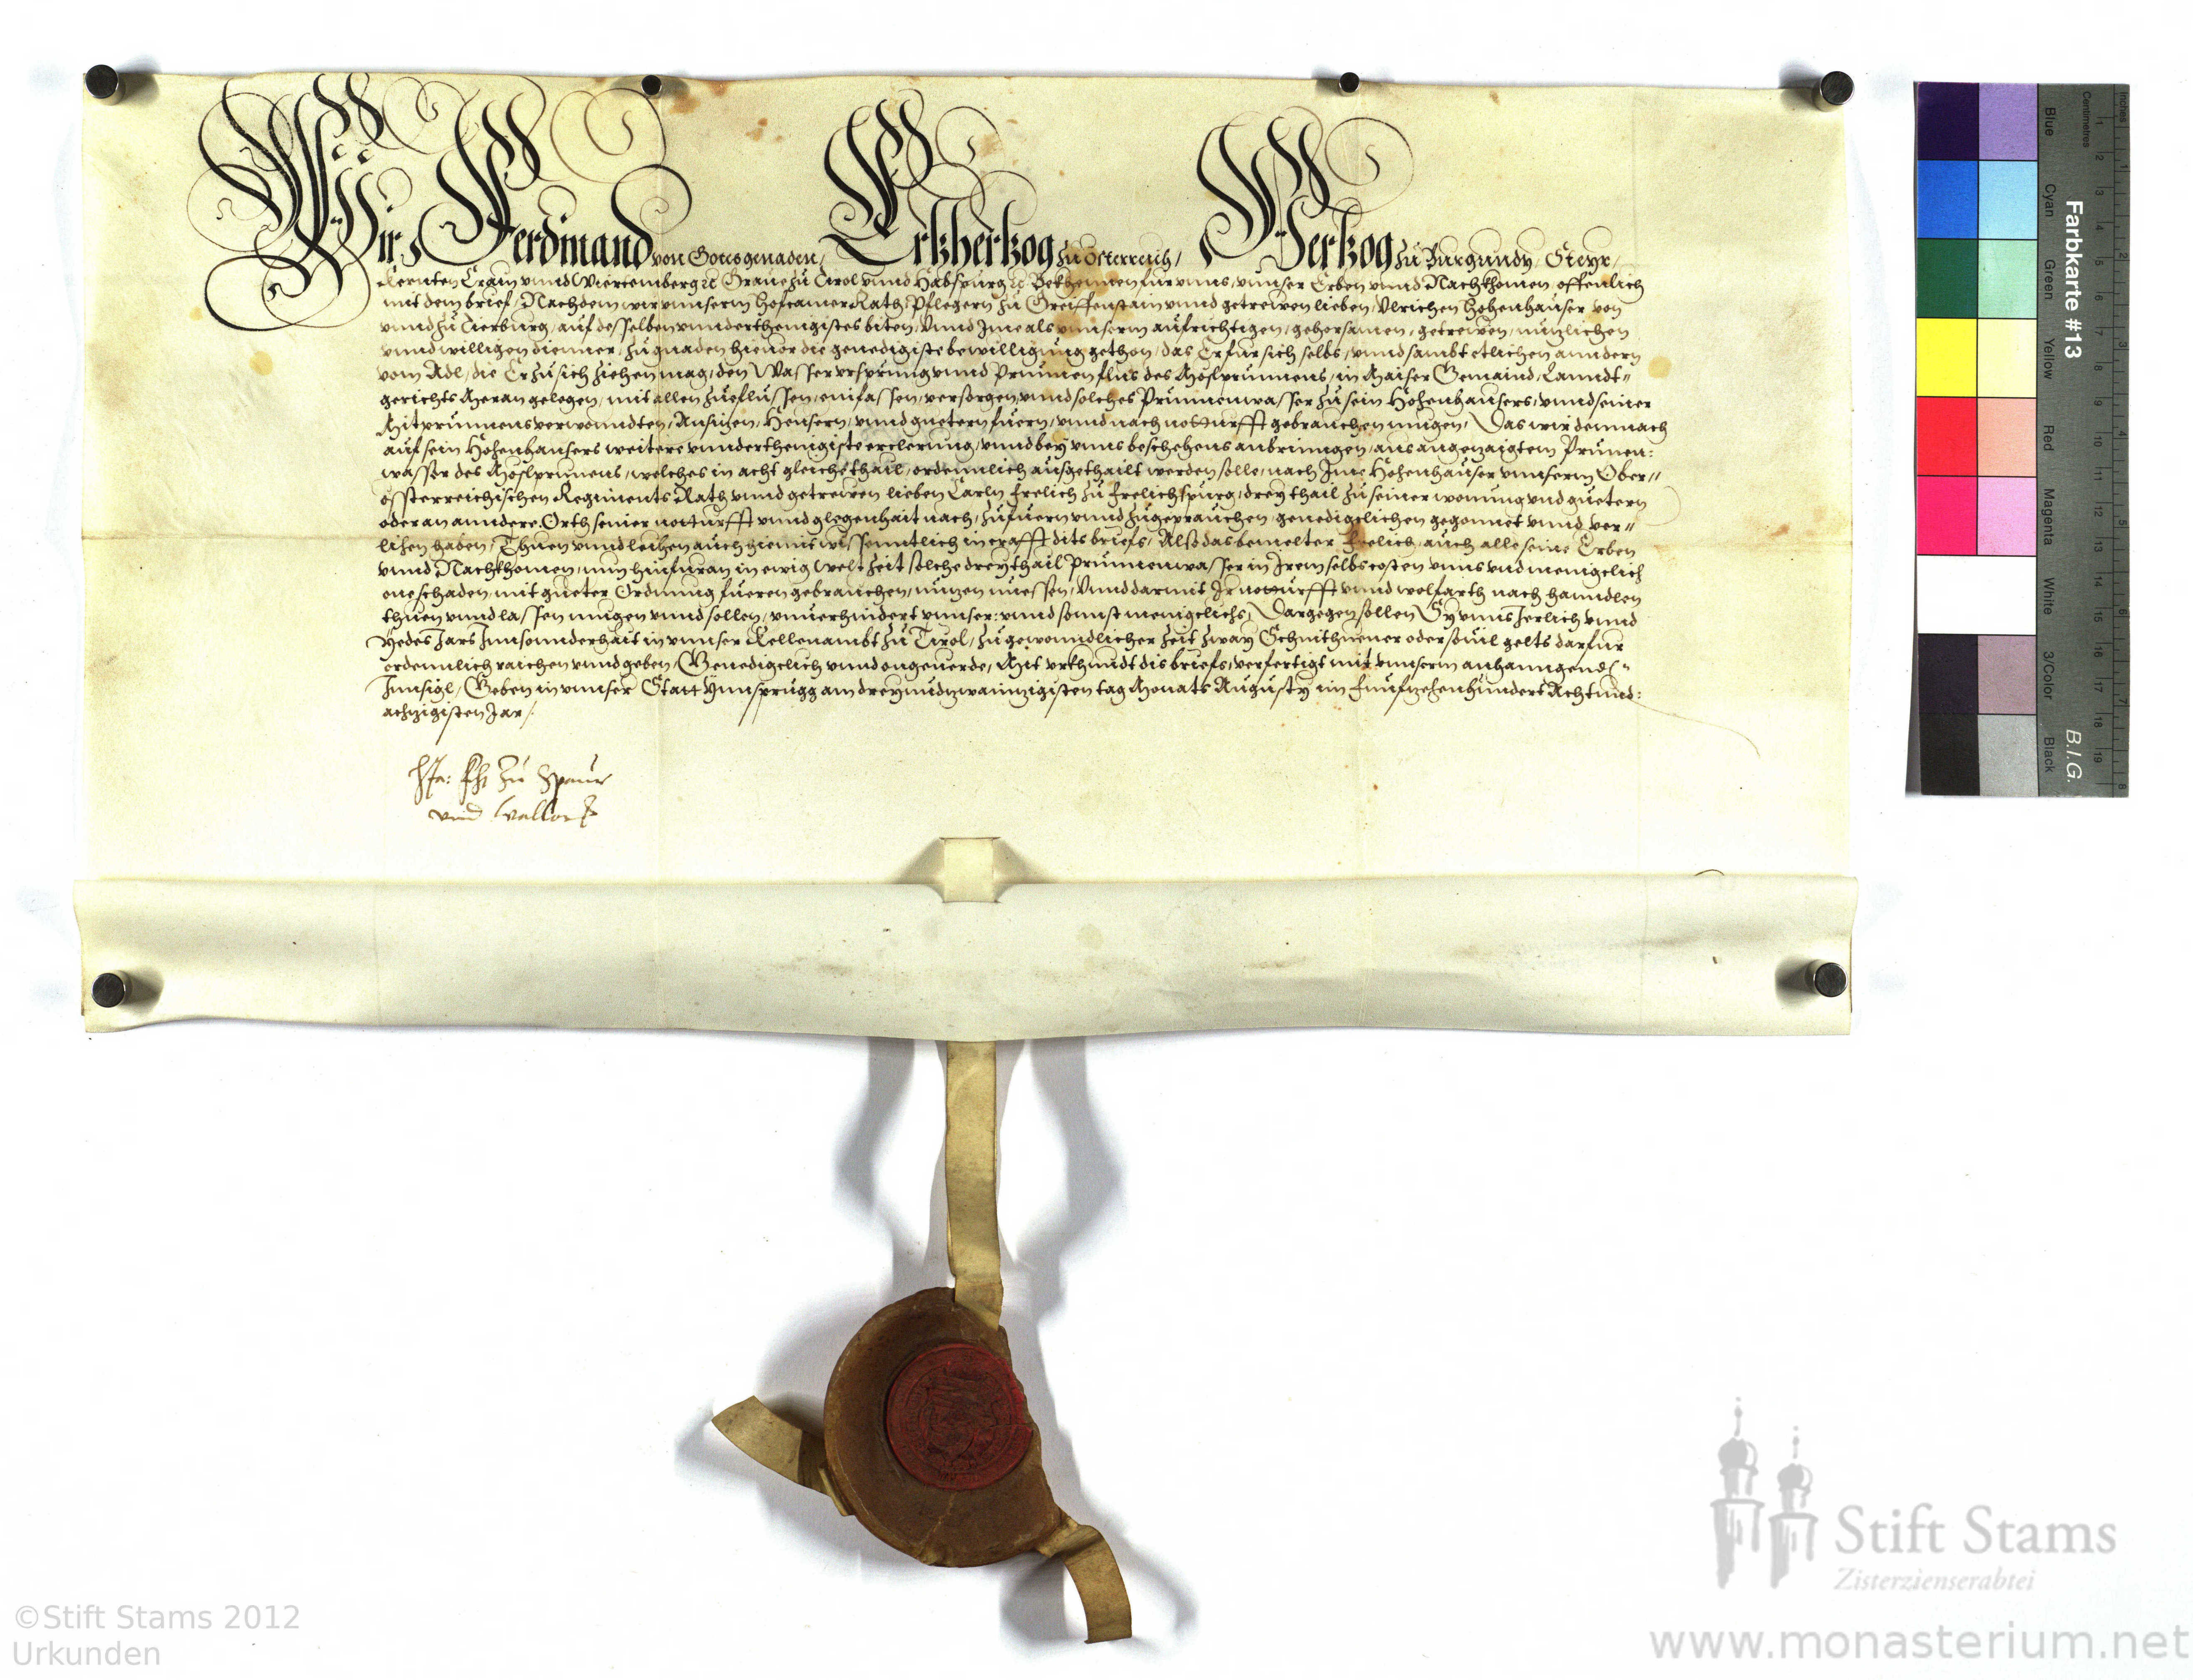 Wir Ferdinand von Gottes genaden, Ertzhertzog zu Osterreich, Hertzog zu Burgundy, Steyr,
Kernten Crain vnnd Wiertemberg &c Graue zu Tirol vnnd Habspurg &c Bekhennen fur vnns, vnnser Erben vnnd Nachkhomen, offenlich
mit dem brief, Nachdem wir vnnserm Hofcamer Rath, Pflegern zu Greiffenstain vnnd getrewen lieben, Vlrichen Hohenhauser von
vnnd zu Tierburg, auf desselben vnnderthenigistes biten, Vnnd Ime als vnnserm aufrichtigen, gehorsamen, getrewen, nutzlichen
vnnd willigen dienner, zu gnaden hieuor die genedigiste bewilligung gethon, das Er fur sich selbs, vnnd sambt etlichen anndern
vom Adl, die Er zu sich ziehen mag, den Wasservrsprung vnnd Prunnenflus des Moslprunnens, in Maiser Gemaind, Lanndt-
gerichts Meran gelegen, mit allen zueflussen, einfassen, versorgen, vnnd solches Prunnenwasser zu sein Hohenhausers, vnnd seiner
Mitprunnensverwonndten, Ansitzen, Heusern, vnnd guetern fuern, vnnd nach notturfft gebrauchen mugen, Das wir demnach
auf sein Hohenhausers weitere vnnderthenigiste erclerung, vnnd bey vnns beschehens anbringen, aus angezaigtem Prunen-
wasser des Moslprunens, welches in acht gleiche thail, ordennlich ausgethailt werden solle, nach Ime Hohenhauser vnnserm Ober-
össterreichischen Regiments Rath vnnd getrewen lieben Carln Frelich zu Frelichspurg, drey thail zu seiner wonung vnd guetern
oder an anndere Orth seiner notturfft vnnd glegenhait nach, zufuern vnnd zugeprauchen, genedigclichen gegonnet vnnd ver-
lihen haben, Thuen vnnd leihen auch hiemit wissenntlich in crafft dits briefs, Also das bemelter Frelich, auch alle seine Erben
vnnd Nachkhomen, nun hinfuran in ewig welt zeit solche drey thail Prunnenwasser in Irem selbs costen vnns vnd menigclich
one schaden, mit gueter Ordnung fueren gebrauchen, nutzen niessen, Vnnd darmit Ir notturfft vnnd wolfarth nach hanndlen
thuen vnnd lassen mugen vnnd sollen, vnuerhindert vnnser, vnnd sonnst menigclichs, Dargegen sollen Sy vnns Jerlich vnnd
Yedes Jars Innsonnderhait in vnnser Kellenambt zu Tirol, zu gewonndlicher zeit zway Schnithuener oder souil gelts darfur
ordennlich raichen vnnd geben, Genedigclich vnnd ongeuerde, Mit vrkhundt dis briefs, verfertigt mit vnnserm anhanngendn
Innsigl, Geben in vnnser Statt Ynnsprugg am dreyundzwainzigisten tag Monats Augusty im Funfzehenhundert Achtund-
achzigisten Jar.
zu Spaur
vnd Vallor
Farbkarte #13
B.I.G.
Inches
Centimetres
Blue
Cyan
Green
Yellow
Red
Magenta
White
3/Color
Black
Stift Stams
Zisterzienserabtei
©Stift Stams 2012
Urkunden
www.monasterium.net